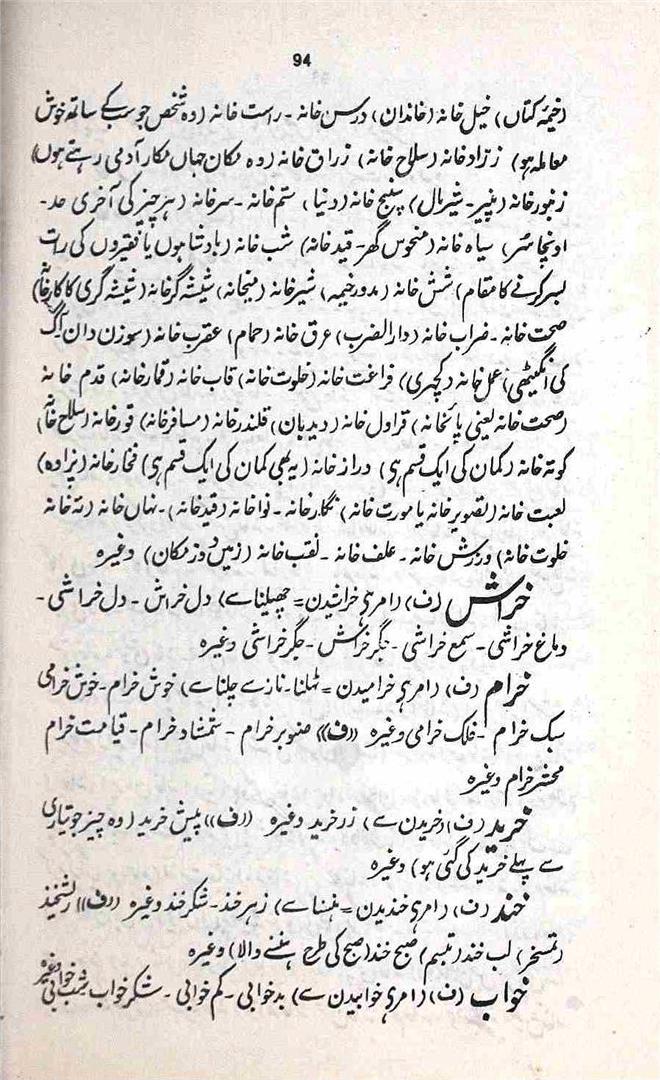 94
(خیمہ کتاں) خیل خانہ (خاندان) درس خانہ - راست خانہ (وہ شخص جو سب کے ساتھ خوش
معاملہ ہو) زرّاد خانہ (سلاح خانہ) زراق خانہ (وہ مکان جہاں مکار آدمی رہتے ہوں)
زنبور خانہ (پنیر - شیر مال) سپنج خانہ (دنیا) ستم خانہ - سر خانہ (ہر چیز کی آخری حد -
اونچا سُر) سیاہ خانہ (منحوس گھر - قید خانہ) شب خانہ (بادشاہوں یا فقیروں کی رات
بسر کرنے کا مقام) شش خانہ (مدور خیمہ) شیر خانہ (میخانہ) شیشہ گر خانہ (شیشہ گری کا کارخانہ)
صحت خانہ - ضراب خانہ (دار الضرب) عرق خانہ (حمام) عقرب خانہ (سوزن دان - آگ
کی انگیٹھی) عمل خانہ (کچہری) فراغت خانہ (خلوت خانہ) قاب خانہ (قمار خانہ) قدم خانہ
(صحت خانہ یعنی پائخانہ) قراول خانہ (دیدبان) قلندر خانہ (مسافر خانہ) قور خانہ (سلاح خانہ)
کوتہ خانہ (کمان کی ایک قسم ہی) دراز خانہ (یہ بھی کمان کی ایک قسم ہی) فخار خانہ (پزادہ)
لعبت خانہ (تصویر خانہ یا مورت خانہ) نگار خانہ - نوا خانہ (قید خانہ) - نہاں خانہ (تہ خانہ
خلوت خانہ) ورزش خانہ - علف خانہ - نقب خانہ (زمیں دوز مکان) وغیرہ
خراش (ف) (امر ہی خراشیدن = چھیلنا سے) دل خراش - دل خراشی -
دماغ خراشی - سمع خراشی - جگر خراش - جگر خراشی وغیرہ
خرام (ف) (امر ہی خرامیدن = ٹہلنا - ناز سے چلنا سے) خوش خرام - خوش خرامی
سبک خرام - فلک خرامی وغیرہ ((ف)) صنوبر خرام - شمشاد خرام - قیامت خرام
محشر خرام وغیرہ
خرید (ف) (خریدن سے) زر خرید وغیرہ ((ف)) پیش خرید (وہ چیز جو تیاری
سے پہلے خرید کی گئی ہو) وغیرہ
خند (ف) (امر ہی خندیدن = ہنسنا سے) زہر خند - شکر خند وغیرہ ((ف)) ریشخند
(تمسخر) لب خند (تبسم) صبح خند (صبح کی طرح ہنسنے والا) وغیرہ
خواب (ف) (امر ہی خوابیدن سے) بد خوابی - کم خوابی - شکر خواب شب خوابی وغیرہ